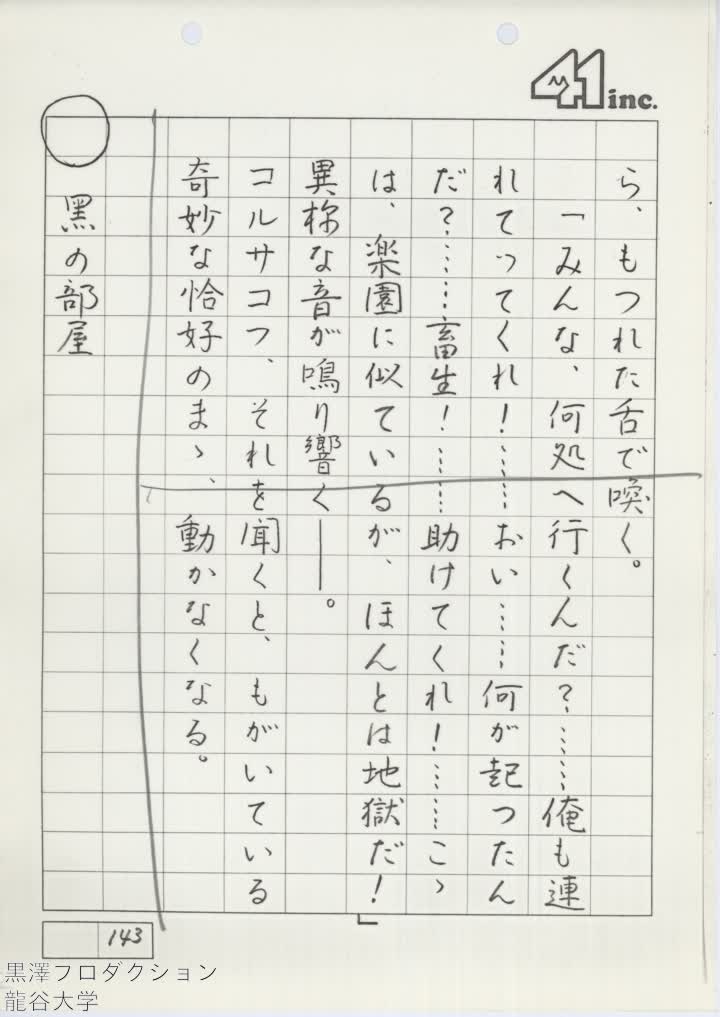 41 inc.
ら、もつれた舌で喚く。
「みんな、何処へ行くんだ？……俺も連
れてってくれ！……おい……何が起つたん
だ？……畜生！……助けてくれ！……こゝ
は、楽園に似ているが、ほんとは地獄だ！
異様な音が鳴り響く――。
コルサコフ、それを聞くと、もがいている
奇妙な恰好のまゝ、動かなくなる。
○　黒の部屋
143
黒澤フロダクション
龍谷大学